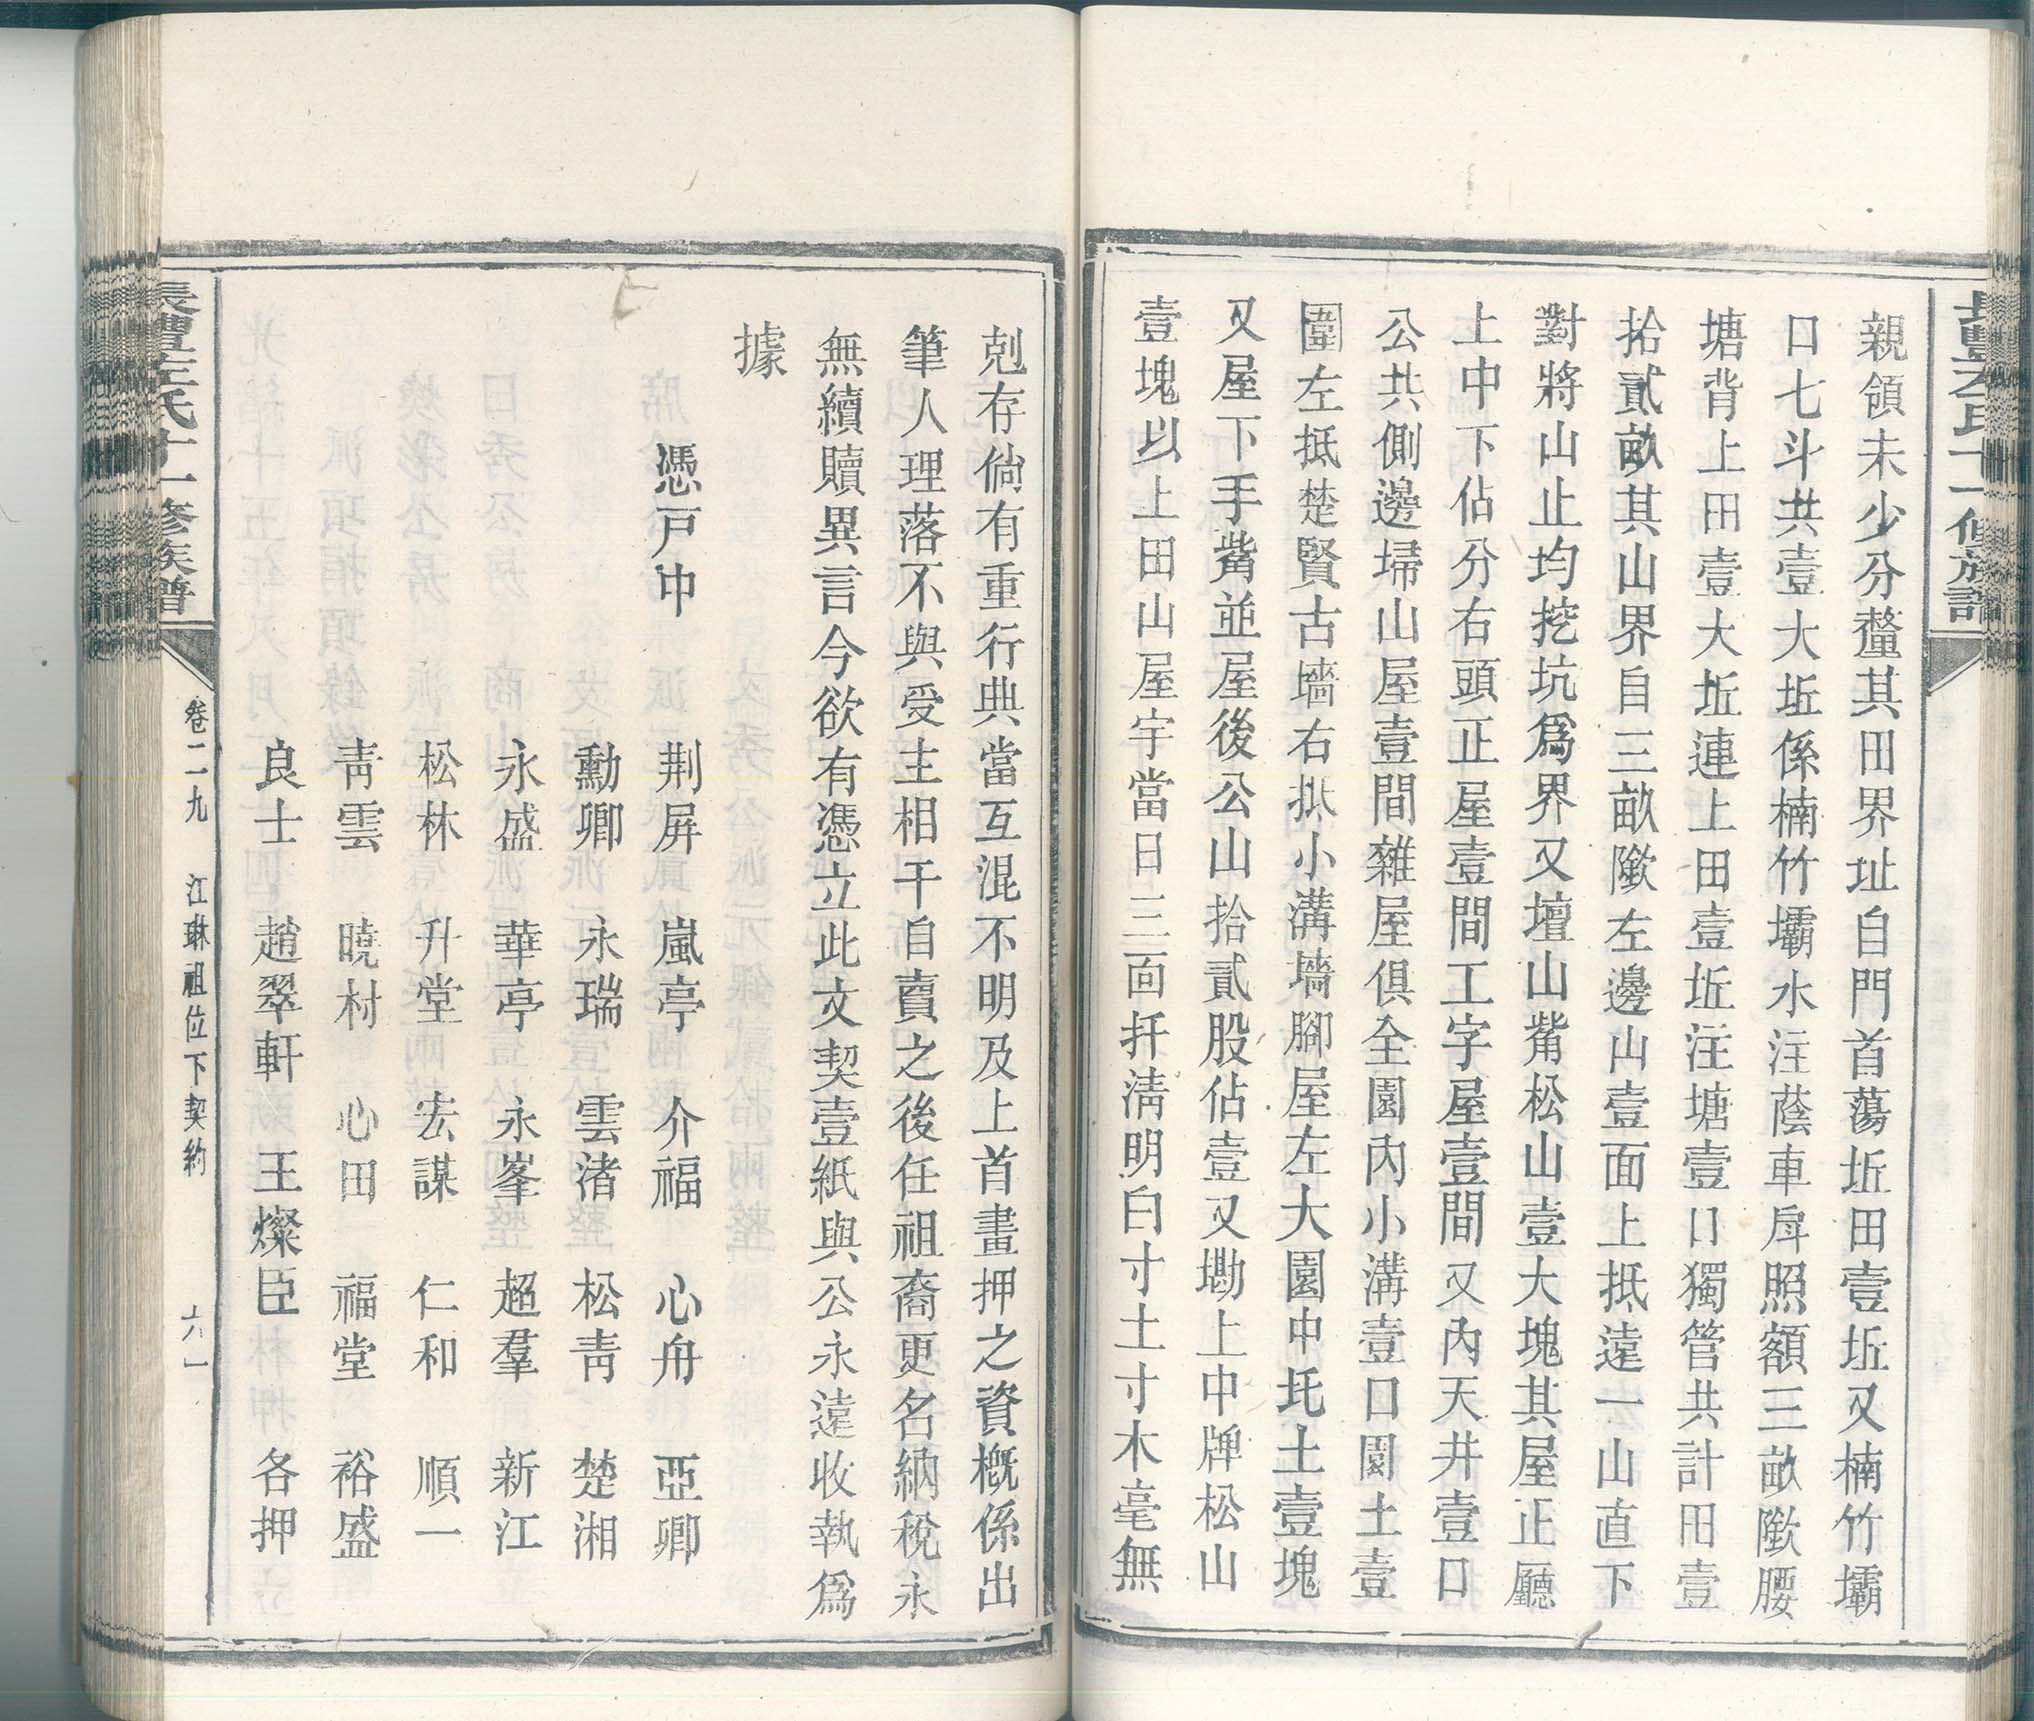 親領未少分釐其田界址自門首蕩坵田壹坵又楠竹壩
口七斗共壹大坵係楠竹壩水注蔭車戽照額三畝隞腰
塘背上田壹大坵連上田壹坵注塘壹口獨管共計田壹
拾貳畝其山界自三畝隞左邊山壹面上抵遠一山直下
對將山止均挖坑爲界又壇山觜松山壹大塊其屋正廳
上中下佔分右頭正屋壹間工字屋壹間又內天井壹口
公共側邊埽山屋壹間雜屋俱全園內小溝壹口園土壹
圍左抵楚賢古墻右抵小溝墻腳屋左大園中坉土壹塊
又屋下手觜並屋後公山拾貳股佔壹又墈上中牌松山
壹塊以上田山屋宇當日三面扦淸明白寸土寸木毫無
剋存倘有重行典當互混不明及上首畫押之資槪係出
筆人理落不與受主相干自賣之後任祖裔更名納稅永
無續贖異言今欲有憑立此文契壹紙與公永遠收執爲
據
憑戸中 荆屏 嵐亭 介福 心舟 亞卿
勳卿 永瑞 雲渚 松靑 楚湘
永盛 華亭 永峯 超羣 新江
松林 升堂 宏謀 仁和 順一
靑雲 曉村 心田 福堂 裕盛
良士 趙翠軒 王燦臣 各押
長豐左氏十一修族譜
卷二九 江琳祖位下契約 六一